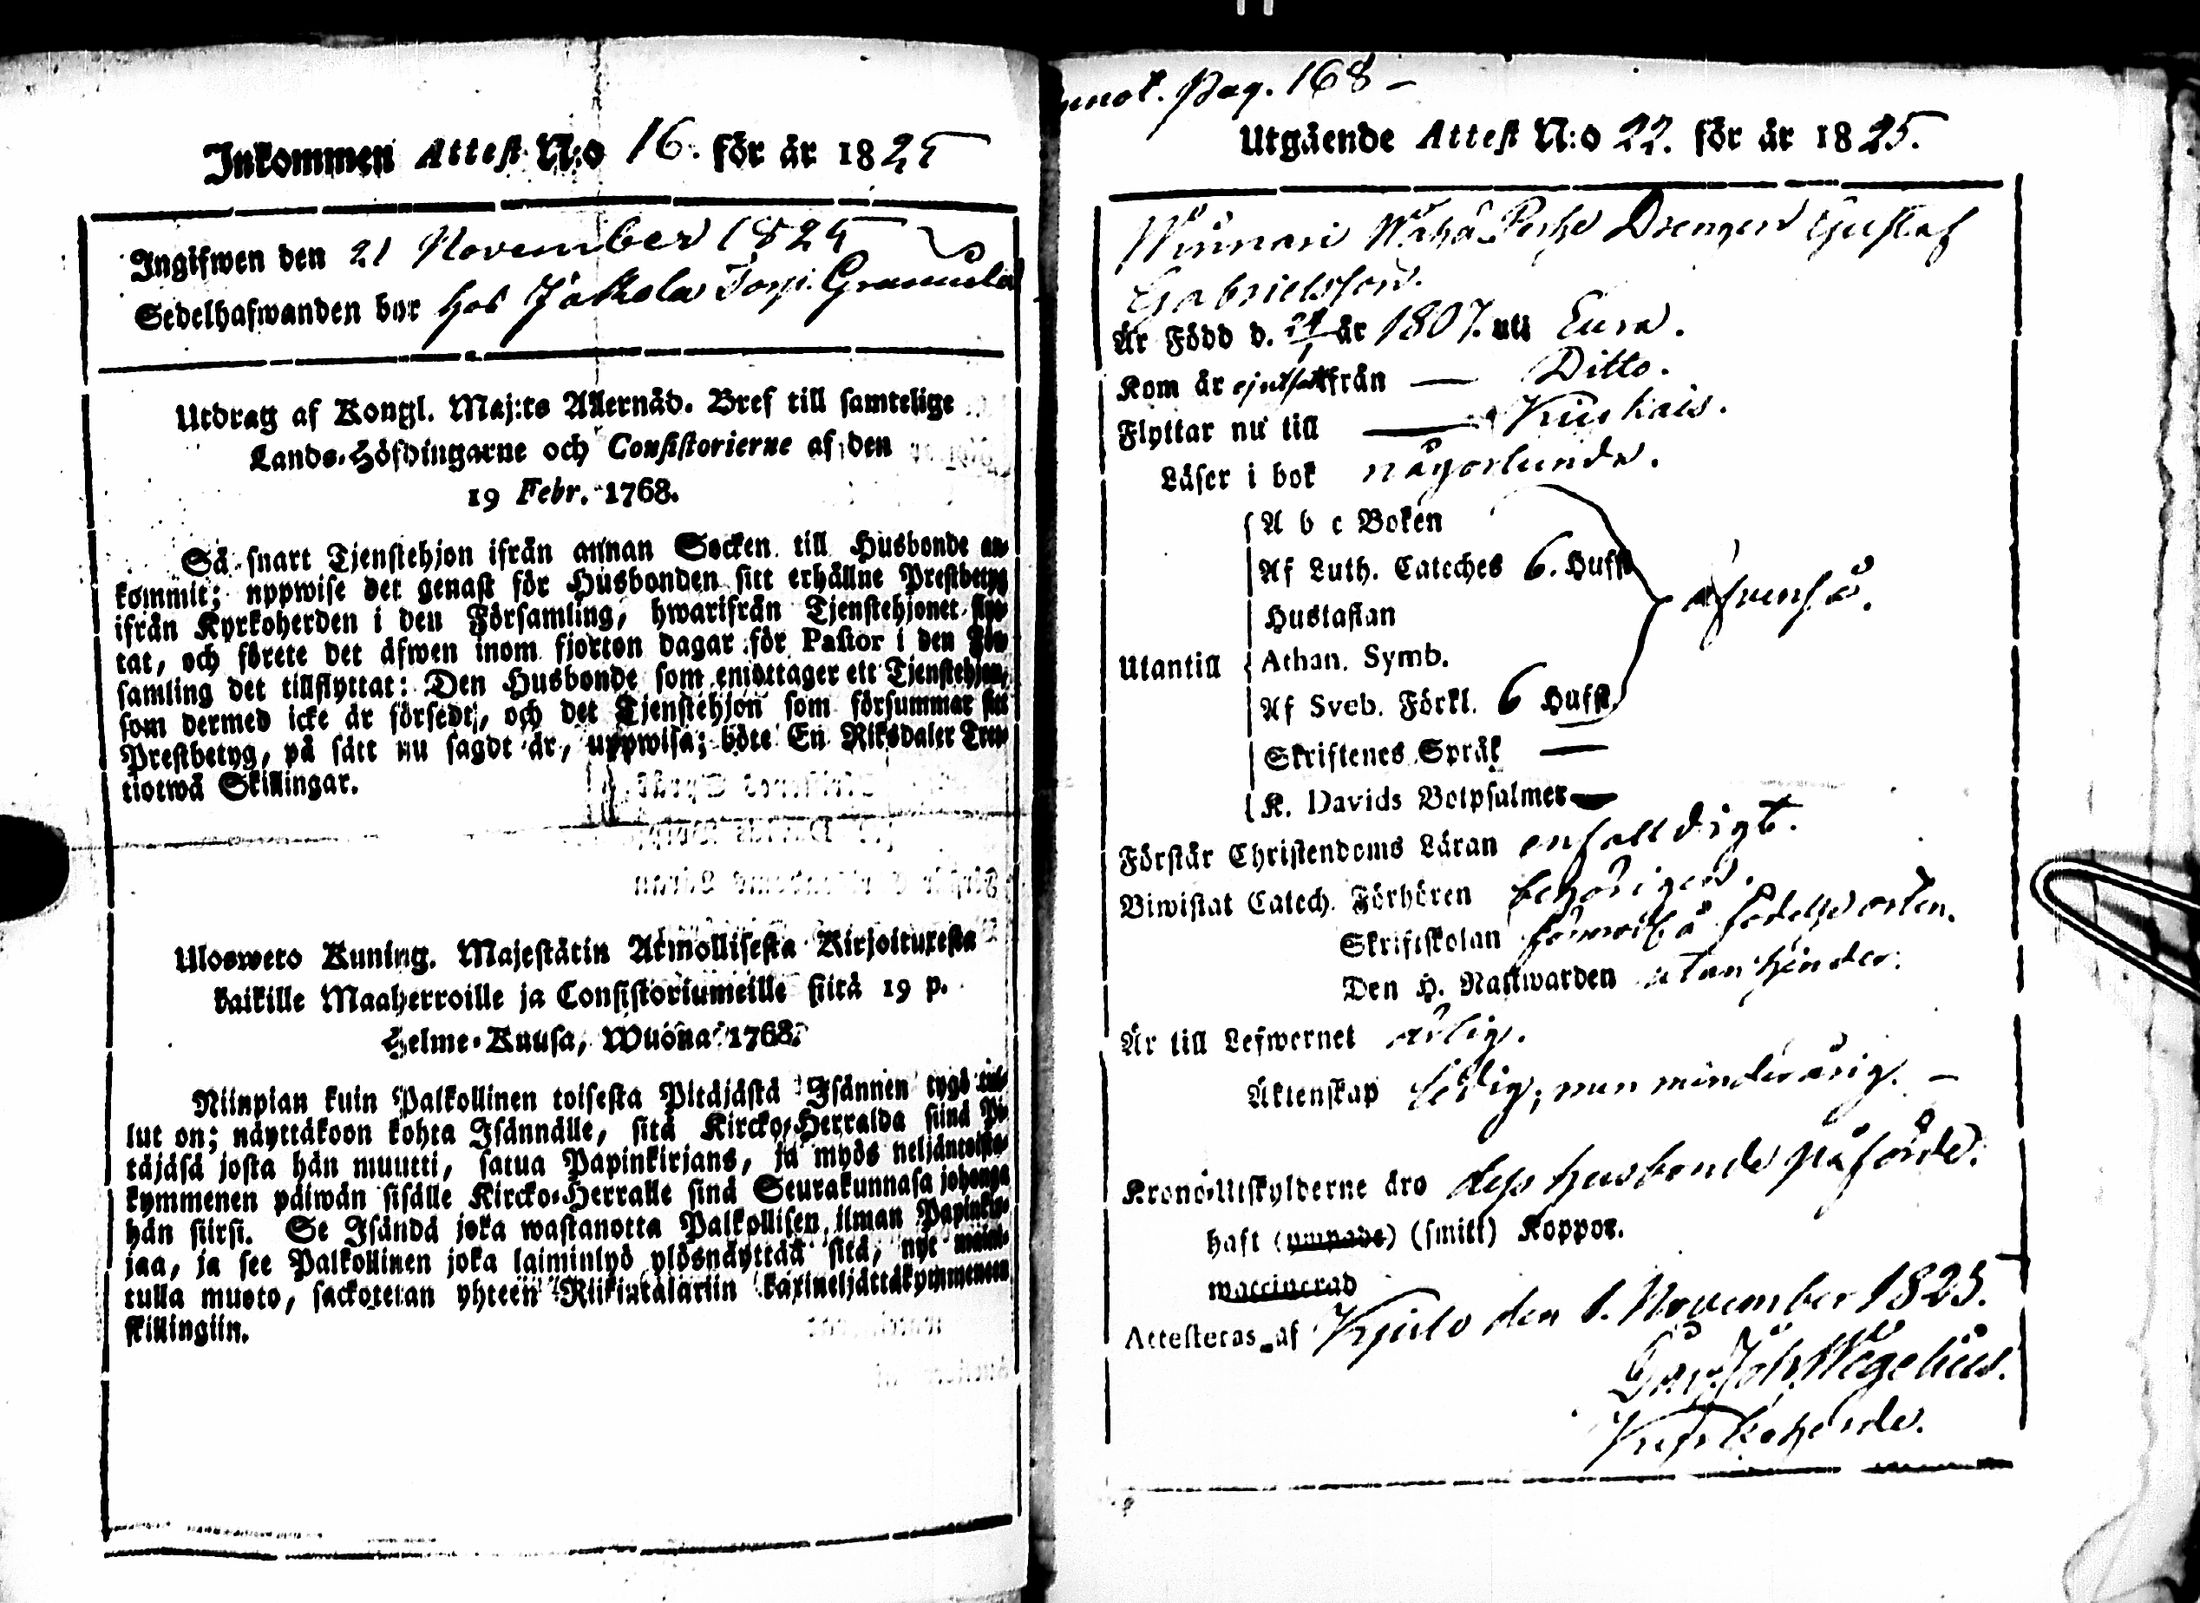 Inkommen Attest N:o 16. för år 1825
Ingifwen den 21 November 1825
Sedelhafwanden bor hos Jakola Torp.
Utdrag af Kongl. Maj:ts Allernåd. Bref till samtelige
Lands-Höfdingarne och Consistorierne af den
19 Febr. 1768.
Så snart Tjenstehjon ifrån annan Socken till Husbonde an-
kommit; uppwise det genast för Husbonden sitt erhållne Prestbetyg
ifrån Kyrkoherden i den Församling, hwarifrån Tjenstehjonet flyt-
tat, och förete det äfwen inom fjorton dagar för Pastor i den För-
samling det tillflyttat: Den Husbonde som emottager ett Tjenstehjon,
som dermed icke är försedt, och det Tjenstehjon som försummar sitt
Prestbetyg, på sätt nu sagdt är, uppwisa; böte En Riksdaler Tret-
tiotwå Skillingar.
Ulosweto Kuning. Majestätin Armollisesta Kirjoituxesta
kaikille Maaherroille ja Consistoriumeille siitä 19 p.
Helme-Kuusa, Wuonna 1768.
Niinpian kuin Palkollinen toisesta Pitäjästä Isännen tygö tul-
lut on; näyttäkoon kohta Isännälle, sitä Kircko-Herralda siinä Pi-
täjäsä josta hän muutti, saatua Papinkirjans, ja myös neljäntoista-
kymmenen päiwän sisälle Kircko-Herralle sinä Seurakunnasa johonga
hän siirsi. Se Isändä joka wastanotta Palkollisen ilman Papinkir-
jaa, ja see Palkollinen joka laiminlyö ylösnäyttää sitä, nyt mainit-
tulla muoto, sackotetan yhteen Riikintalariin kaxineljättäkymmeneen
skillingiin.
Pag. 168 –
Utgående Attest N:o 22. för år 1825.
Winnari Drengen Gustaf
Gabrielsson.
Är Född d. år 1807. uti Eura.
Kom år från — Ditto.
Flyttar nu till — Kiukais.
Läser i bok någorlunda.
A b c Boken
Af Luth. Cateches 6. Hufst
Hustaflan
Utantill Athan. Symb.
Af Sveb. Förkl. 6 Hufst.
Skriftenes Språk —
K. Davids Botpsalmer —
Förstår Christendoms Läran enfalldigt.
Biwistat Catech. Förhören behörigen.
Skriftskolan födelse orten.
Den H. Nattwarden utan hinder.
Är till Lefwernet ärlig.
Äktenskap ledig, men minderårig. –
Krono-Utskylderne äro dess husbonde påförde.
haft (ympade) (smitt) Koppor.
waccinerad
Attesteras af Kjulo den 1. November 1825.
Joh. Wegelius.
Kyrkoherde.